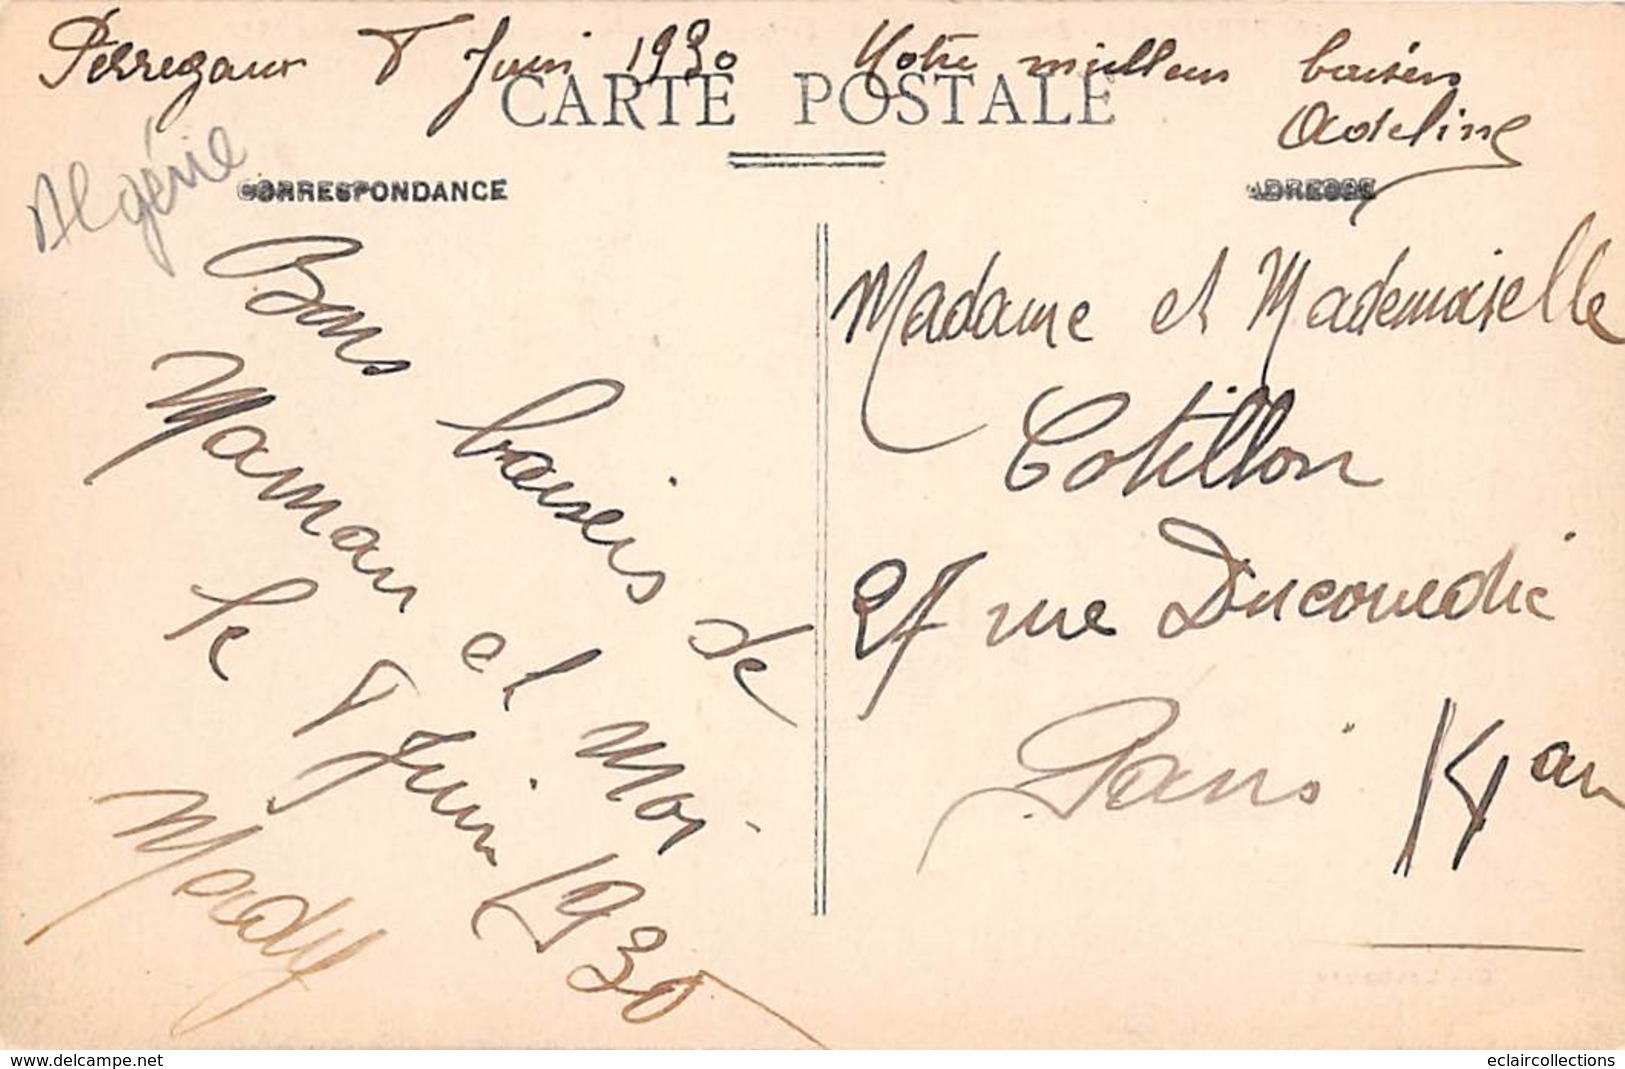 Perregaux 8 Juin 1930 Notre meilleurs baisers
Adeline
CARTE POSTALE
Algérie
CORRESPONDANCE
ADRESSE
Bons baisers de
Maman et Moi
le 8 Juin 1930
Mady
Madame et Mademoiselle
Cotillon
27 rue Ducouedic
Paris 14 arr
www.delcampe.net
eclaircollections